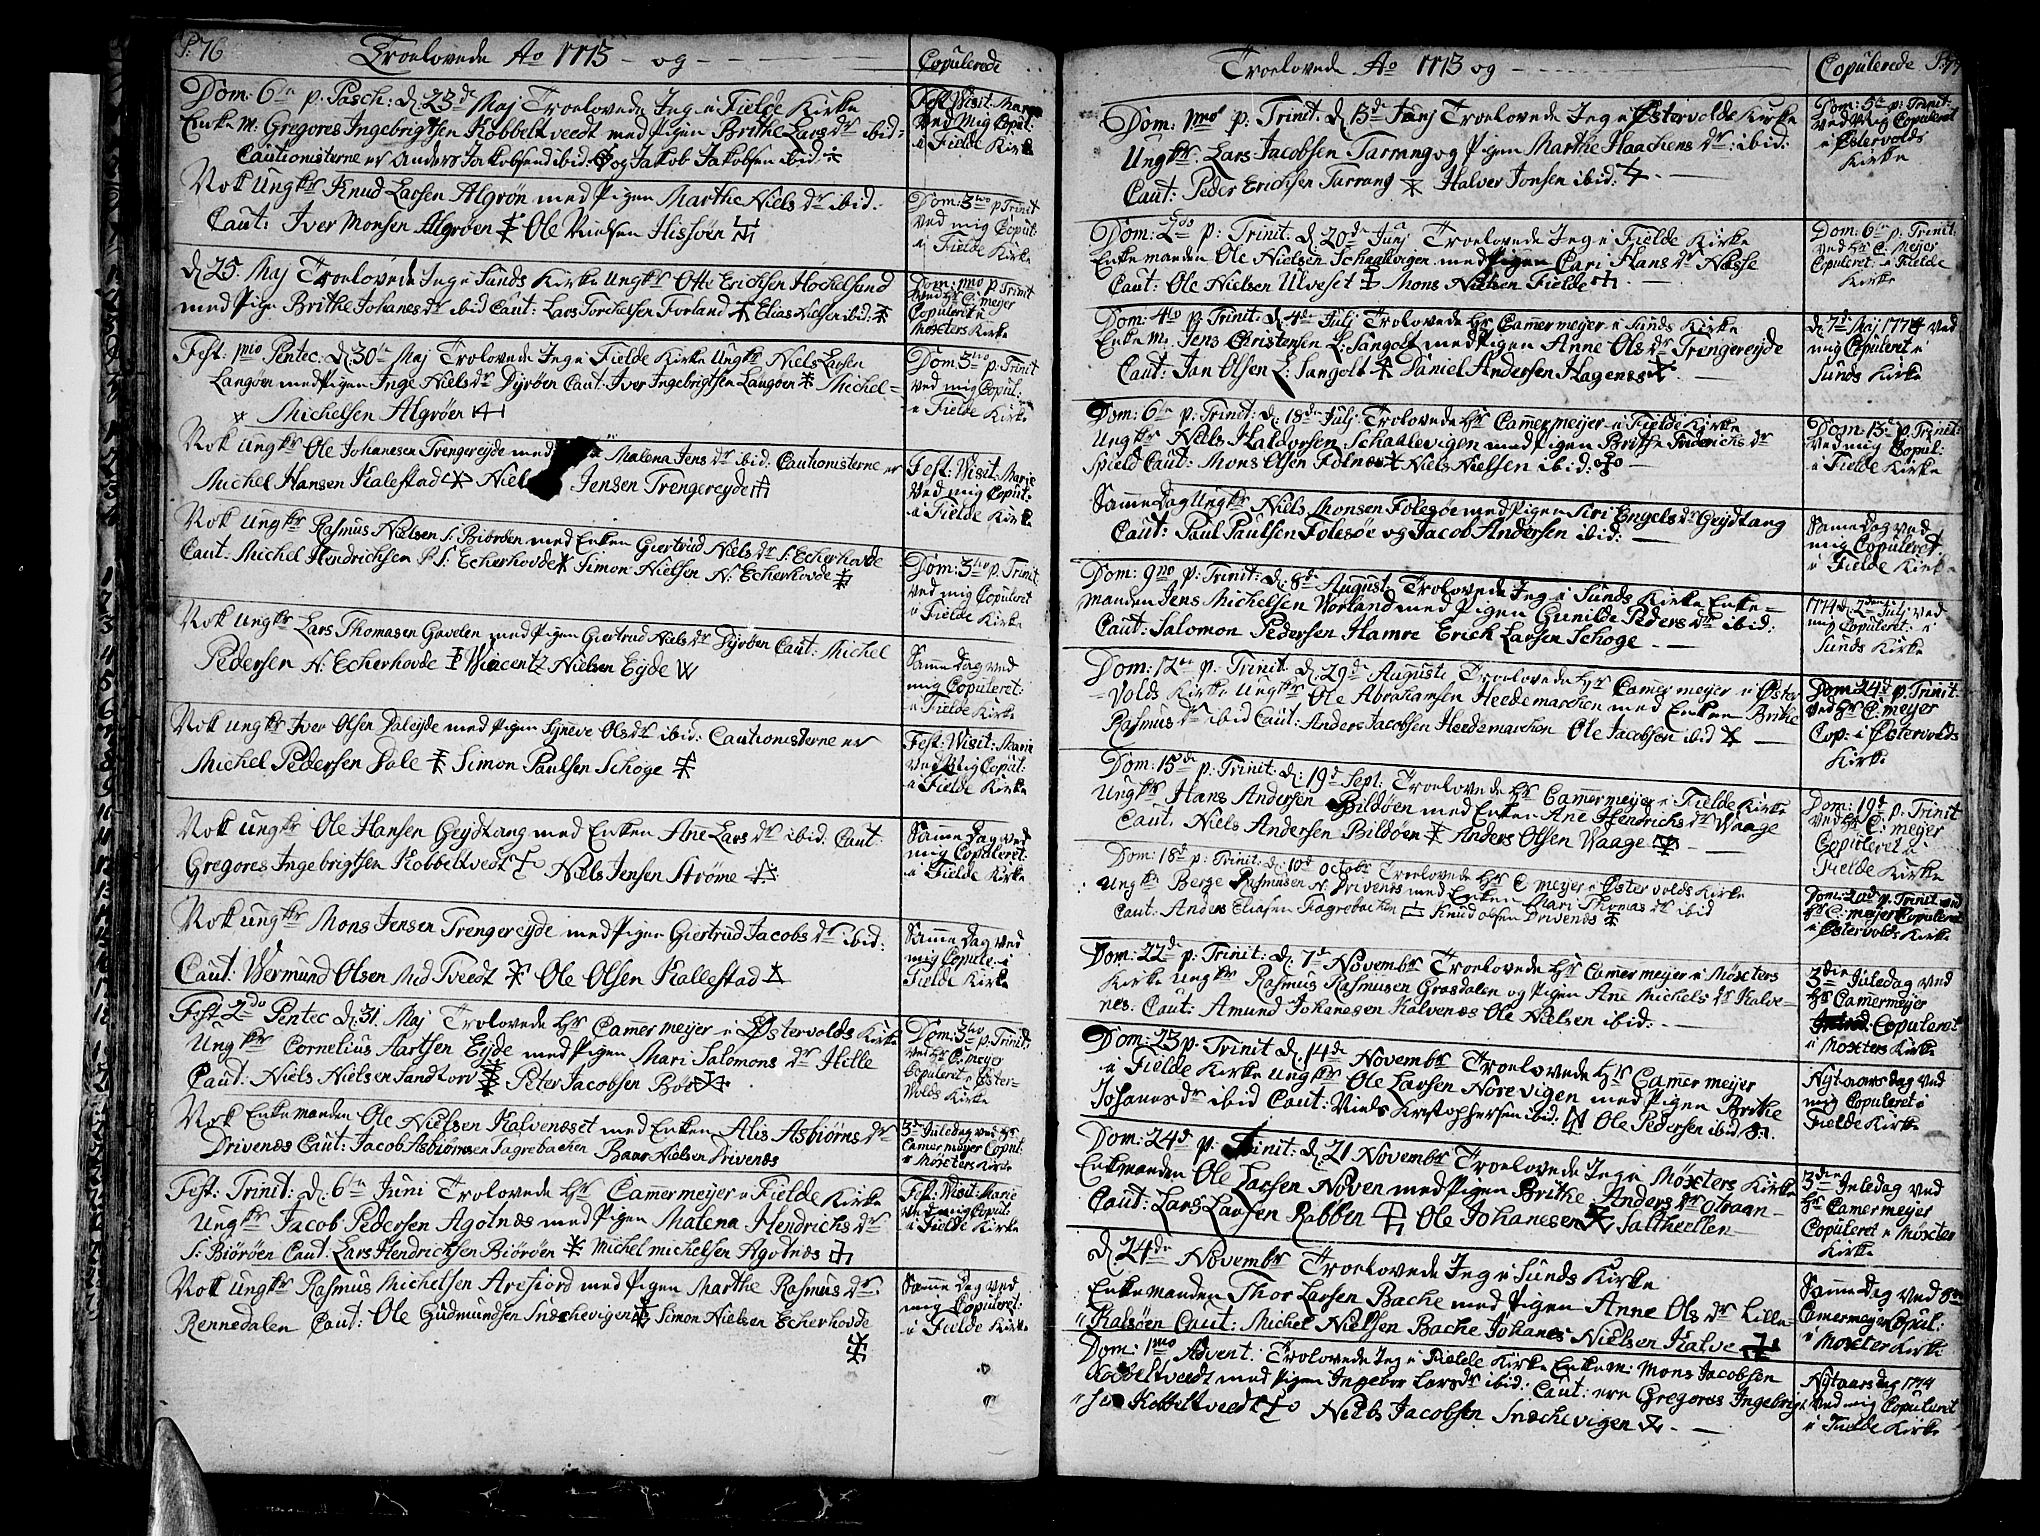 P: 76
Troelovede Ao 1773 - og -
Copulerede
Dom: 6te p. Pasch: d. 23de Maj Troelovede Jeg i Fielde Kirke
Enke m: Gregores Ingebrigtsen Kobbeltvedt med Pigen Brithe Lars dr ibid:
Cautionisterne er Anders Jakobsen ibid. og Jakob Jakobsen ibid:
Fest: Visit: Mariæ
Ved Mig Copul:
i Fielde Kirke
Nok Ungkr Knud Larsen Algrøn med Pigen Marthe Niels dr ibid.
Caut: Iver Monsen Algrøen Ole Nielsen Hissøen
Dom: 3tio p Trinit
ved mig Copul:
i Fielde Kirke
d. 25. Maj Troelovede Jeg i Sunds Kirke Ungkr Otte Erichsen Hockelsund
med Pige Brithe Johanes dr ibid Caut: Lars Torchelsen Forland Elias Nielsen ibid:
Dom: 1mo p Trinit
ved Hr C: meijer
Copuleret i
Møxters Kirke
Fest: 1mo Pentec: d. 30te Maj Trolovede Jeg i Fielde Kirke Ungkr Niels Larsen
Langøen med Pigen Inge Niels dr Dyrøen Caut: Iver Ingebrigtsen Langøen Michel=
Michelsen Algrøen
Dom: 3tio p: Trinit
ved mig Copul:
i Fielde Kirke
Nok Ungkr Ole Johanesen Trengereyde med Malena Jens dr ibid: Cautionisterne er
Michel Hansen Kalestad Niels Jensen Trengereyde
Fest: Visit: Marie
Ved mig Copul:
i Fielde Kirke
Nok Ungkr Rasmus Nielsen S: Biørøen med Enken Giertrud Niels dr S: Echerhovde
Caut: Michel Hendrichsen S: Echerhovde Simon Nielsen N: Echerhovde
Dom: 3tio p. Trinit
Ved mig Copuleret
i Fielde Kirke
Nok Ungkr Lars Thomasen Gavelen med Pigen Giertrud Niels dr Dyrøen Caut: Michel
Pedersen N: Echerhovde Wincentz Nielsen Eyde
Same Dag ved
mig Copuleret:
i Fielde Kirke
Nok Ungkr Iver Olsen Daleyde med Pigen Synneve Ols dr ibid: Cautionisterne er
Michel Pedersen Dale Simon Paulsen Schoge
Fest: Visit: Marie
ved Mig Copul:
i Fielde Kirke
Nok Ungkr Ole Hansen Geydtang med Enken Ane Lars dr ibid. Caut:
Gregores Ingebrigtsen Kobbeltvedt Niels Jensen Strøme
Same Dag ved
mig Copuleret:
i Fielde Kirke
Nok Ungkr Mons Jensen Trengereyde med Pigen Giertrud Jacobs dr ibid:
Caut: Wermund Olsen Med Tvedt Ole Olsen Kallestad
Same Dag ved
mig Copule: i
Fielde Kirke
Fest: 2do Pentec d. 31. Maj Trolovede Hr Camermeijer i Østervolds Kirke
Ungkr Cornelius Aartsen Eyde med Pigen Mari Salomons dr Hille
Caut: Niels Nielsen Sandtorv Peter Jacobsen Boe
Dom: 3tio p: Trinit:
ved Hr C: meyer
Copuleret i Øster-
Volds Kirke
Nok Enkemanden Ole Nielsen Kalveneset med Enken Alis Asbiørns dr
Drivenes Caut: Jacob Asbiørnsen Fagrebachen Baar Nielsen Drivenæs
3de Juledag ved Hr
Camermeyer Copul:
i Møxters Kirke
Fest: Trinit: d: 6te Juni Trolovede Hr Camermeijer i Fielde Kirke
Ungkr Jacob Pedersen Agotnæs med Pigen Malena Hendrichs dr
S: Biørøen Caut: Lars Hendrichsen Biørøen Michel Michelsen Agotnæs
Fest: Visit: Marie
Ved mig Copul:
i Fielde Kirke
Nok Ungkr Rasmus Michelsen Arefiord med Pigen Marthe Rasmus dr
Rennedalen Caut: Ole Gudmundsen Snechevigen Simon Nielsen Echerhovde
Same Dag ved
mig Copuleret:
i Fielde Kirke
Troelovede Ao 1773 og -
Copulerede P: 77
Dom: 1mo p: Trinit: d. 13de Junj Troelovede Jeg i Østervolds Kirke
Ungkr. Lars Jacobsen Tarrang og Pigen Marthe Haachens dr: ibid:
Caut: Peder Erichsen Tarrang Halver Jonsen ibid:
Dom: 5te p: Trinit:
ved Mig Copuleret
i Østervolds
Kirke
Dom: 2do p: Trinit: d. 20de Junj Troelovede Jeg i Fielde Kirke
Enkemanden Ole Nielsen Schaalevigen med Pigen Cari Hans dr Næsse
Caut: Ole Nielsen Ulveset Mons Nielsen Fielde
Dom: 6te p: Trinit:
ved Hr C: Meyer
Copuleret: i Fielde
Kirke
Dom: 4to p: Trinit: d. 4de Julj Trolovede Hr Camermeijer i Sunds Kirke
Enke m: Jens Christensen L: Sangolt med Pigen Anne Ols dr Trengereyde
Caut: Jan Olsen L: Sangolt Daniel Andersen Hagenes
d. 7de Maj 1774 ved
mig Copuleret i
Sunds Kirke
Dom: 6te p: Trinit: d. 18de Julj Trolovede Hr Camermeijer i Fielde Kirke
Ungkr Niels Haldorsen Schaalevigen med Pigen Brithe Friderichs dr
Spield Caut: Mons Olsen Folnes Niels Nielsen ibid:
Dom: 13de p: Trinit:
Ved mig Copul:
i Fielde Kirke
Same Dag Ungkr Niels Monsen Folesøe med Pigen Siri Engels dr Geydtang
Caut: Paul Paulsen Folesøe og Jacob Andersen ibid:
Same Dag ved
mig Copuleret
i Fielde Kirke
Dom: 9no p: Trinit: d: 8de August: Trolovede Jeg i Sunds Kirke Enke=
manden Jens Michelsen Vorland med Pigen Gunilde Peders dr ibid:
Caut: Salomon Pedersen Hamre Erich Larsen Schoge
1774 d. 7den Julj ved
mig Copuleret: i
Sunds Kirke
Dom: 12te p: Trinit: d. 29de Augusti Troelovede Hr Camermeijer i Øster
=Volds Kirke Ungkr Ole Abrahamsen Heedemarchen med Enken Brithe
Rasmus dr ibid Caut: Anders Jacobsen Heedemarchen Ole Jacobsen ibid
Dom: 24de p. Trinit:
ved Hr C: meyer
Cop: i Østervolds
Kirke
Dom: 15de p: Trinit: d: 19de Sept: Troelovede Hr Camermeijer i Fielde Kirke
Ungkr Hans Andersen Bildøen med Enken Ane Hendrichs dr Waage
Caut: Niels Andersen Bildøen Anders Olsen Waage
Dom: 19de p: Trinit
ved Hr C: meyer
Copuleret i
Fielde Kirke
Dom: 18de p: Trinit: d: 10de Octobr Troelovede Hr C meijer i Østervolds Kirke
Ungkr Berge Rasmusen N: Drivenes med Enken Mari Thomas dr ibid
Caut: Anders Eliasen Fagrebachen Knud Olsen Drivenæs
Dom: 20de p. Trinit ved
Hr C: meyer Copuleret
i Østervolds Kirke
Dom: 22de p: Trinit: d. 7de Novembr Troelovede Hr Camermeyer i Møxters
Kirke Ungkr Rasmus Rasmusen Grosdalen og Pigen Ane Michels dr Kalve=
nes. Caut: Amund Johanesen Kalvenæs Ole Nielsen ibid:
3die Juledag ved
Hr Camermeyer
Copuleret
i Møxters Kirke
Dom: 23 p. Trinit d. 14de Novembr Troelovede Hr Camermeijer
i Fielde Kirke Ungkr Ole Larsen Norevigen med Pigen Brithe
Johanes dr ibid Caut: Niels Kristophersen ibid. Ole Pedersen ibid
Nytaarsdag ved
mig Copuleret i
Fielde Kirke
Dom: 24de p. Trinit: d. 21 Novembr Troelovede Jeg i Møxters Kirke
Enkmanden Ole Larsen Noven med Pigen Brithe Anders dr Otraan=
Caut: Lars Larsen Rabben Ole Johanesen Saltheellen
3die Juledag ved
Hr Camermeyer
Copuleret i Møxter
Kirke
d. 24de Novembr Troelovede Jeg i Sunds Kirke
Enkemanden Thor Larsen Bache med Pigen Anne Ols dr Lille
Kalsøen Caut: Michel Nielsen Bache Johanes Nielsen Kalve
Same Dag ved Hr
Camermeyer Copul:
i Møxter Kirke
Dom: 1mo Advent: Trolovede Jeg i Fielde Kirke Enke m: Mons Jacobsen
Kobbeltvedt med Pigen Ingebor Lars dr ibid: Caut: ere Gregores Ingebrigt
sen Kobbeltvedt Niels Jacobsen Snechevigen
Nytaarsdag 1774
Ved mig Copuleret
i Fielde Kirke